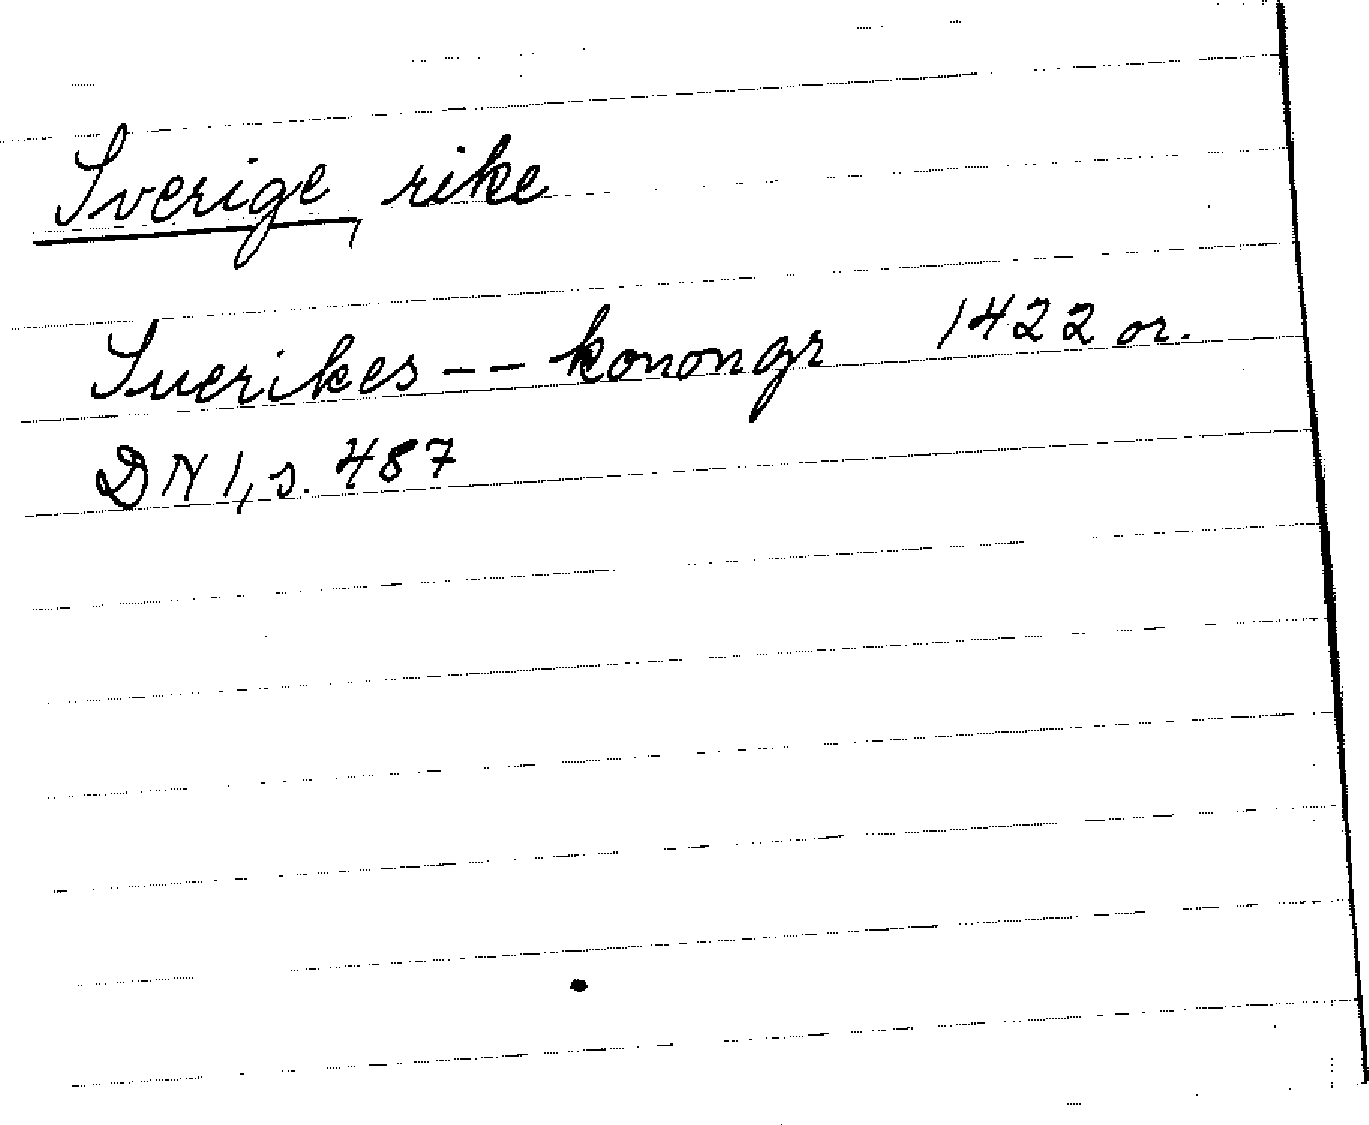 Sverige, rike
Suerikes -- konongr 1422 or.
DN 1, s. 487